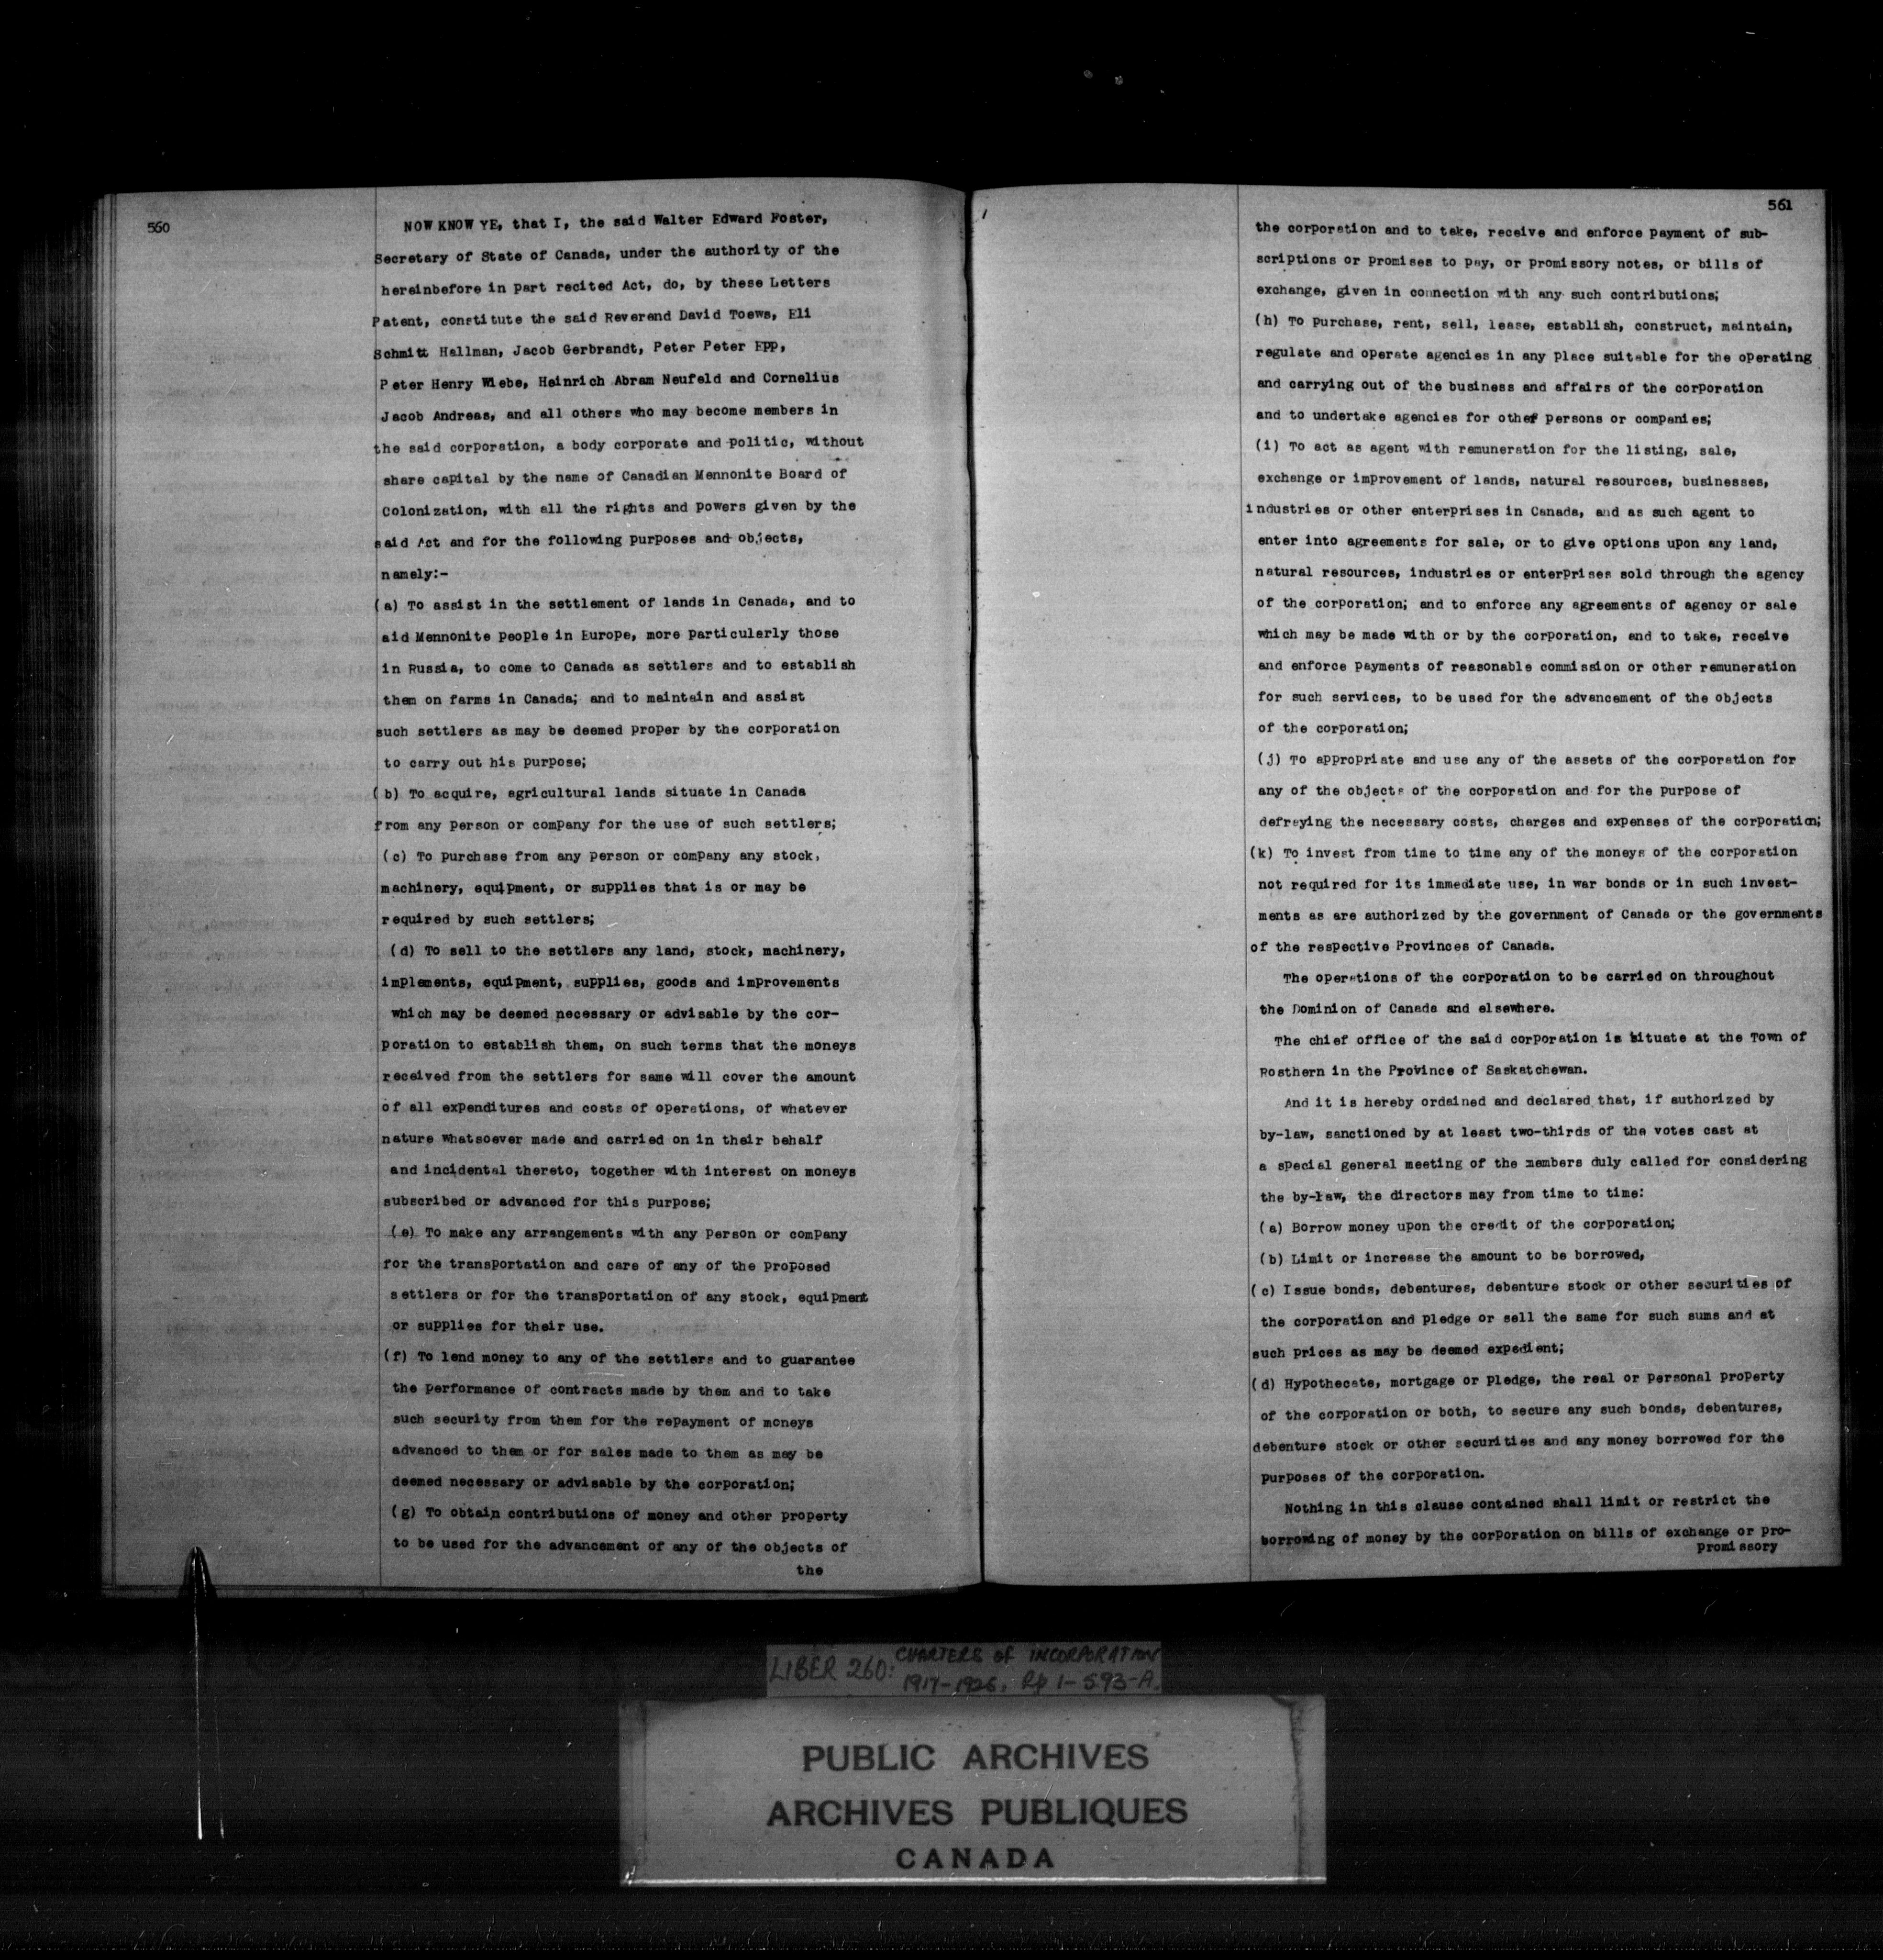 560
NOW KNOW YE, that I, the said Walter Edward Foster,
Secretary of State of Canada, under the authority of the
hereinbefore in part recited Act, do, by these Letters
Patent, constitute the said Reverend David Toews, Eli
Schmitt Hallman, Jacob Gerbrandt, Peter Peter Epp,
Peter Henry Wiebe, Heinrich Abram Neufeld and Cornelius
Jacob Andreas, and all others who may become members in
the said corporation, a body corporate and politic, without
share capital by the name of Canadian Mennonite Board of
Colonization, with all the rights and powers given by the
said Act and for the following purposes and objects,
namely:-
(a) To assist in the settlement of lands in Canada, and to
aid Mennonite people in Europe, more particularly those
in Russia, to come to Canada as settlers and to establish
them on farms in Canada; and to maintain and assist
such settlers as may be deemed proper by the corporation
to carry out his purpose;
(b) To acquire, agricultural lands situate in Canada
from any person or company for the use of such settlers;
(c) To purchase from any person or company any stock,
machinery, equipment, or supplies that is or may be
required by such settlers;
(d) To sell to the settlers any land, stock, machinery,
implements, equipment, supplies, goods and improvements
which may be deemed necessary or advisable by the cor-
poration to establish them, on such terms that the moneys
received from the settlers for same will cover the amount
of all expenditures and costs of operations, of whatever
nature whatsoever made and carried on in their behalf
and incidental thereto, together with interest on moneys
subscribed or advanced for this purpose;
(e) To make any arrangements with any person or company
for the transportation and care of any of the proposed
settlers or for the transportation of any stock, equipment
or supplies for their use.
(f) To lend money to any of the settlers and to guarantee
the performance of contracts made by them and to take
such security from them for the repayment of moneys
advanced to them or for sales made to them as may be
deemed necessary or advisable by the corporation;
(g) To obtain contributions of money and other property
to be used for the advancement of any of the objects of
the
561
the corporation and to take, receive and enforce payment of sub-
scriptions or promises to pay, or promissory notes, or bills of
exchange, given in connection with any such contributions;
(h) To purchase, rent, sell, lease, establish, construct, maintain,
regulate and operate agencies in any place suitable for the operating
and carrying out of the business and affairs of the corporation
and to undertake agencies for other persons or companies;
(i) To act as agent with remuneration for the listing, sale,
exchange or improvement of lands, natural resources, businesses,
industries or other enterprises in Canada, and as such agent to
enter into agreements for sale, or to give options upon any land,
natural resources, industries or enterprises sold through the agency
of the corporation; and to enforce any agreements of agency or sale
which may be made with or by the corporation, and to take, receive
and enforce payments of reasonable commission or other remuneration
for such services, to be used for the advancement of the objects
of the corporation;
(j) To appropriate and use any of the assets of the corporation for
any of the objects of the corporation and for the purpose of
defraying the necessary costs, charges and expenses of the corporation;
(k) To invest from time to time any of the moneys of the corporation
not required for its immediate use, in war bonds or in such invest-
ments as are authorized by the government of Canada or the governments
of the respective Provinces of Canada.
The operations of the corporation to be carried on throughout
the Dominion of Canada and elsewhere.
The chief office of the said corporation is situate at the Town of
Rosthern in the Province of Saskatchewan.
And it is hereby ordained and declared that, if authorized by
by-law, sanctioned by at least two-thirds of the votes cast at
a special general meeting of the members duly called for considering
the by-law, the directors may from time to time:
(a) Borrow money upon the credit of the corporation;
(b) Limit or increase the amount to be borrowed,
(c) Issue bonds, debentures, debenture stock or other securities of
the corporation and pledge or sell the same for such sums and at
such prices as may be deemed expedient;
(d) Hypothecate, mortgage or pledge, the real or personal property
of the corporation or both, to secure any such bonds, debentures,
debenture stock or other securities and any money borrowed for the
purposes of the corporation.
Nothing in this clause contained shall limit or restrict the
borrowing of money by the corporation on bills of exchange or pro-
promissory
LIBER 260: CHARTERS of INCORPORATION
1917-1926, Pp 1-593-A.
PUBLIC ARCHIVES
ARCHIVES PUBLIQUES
CANADA